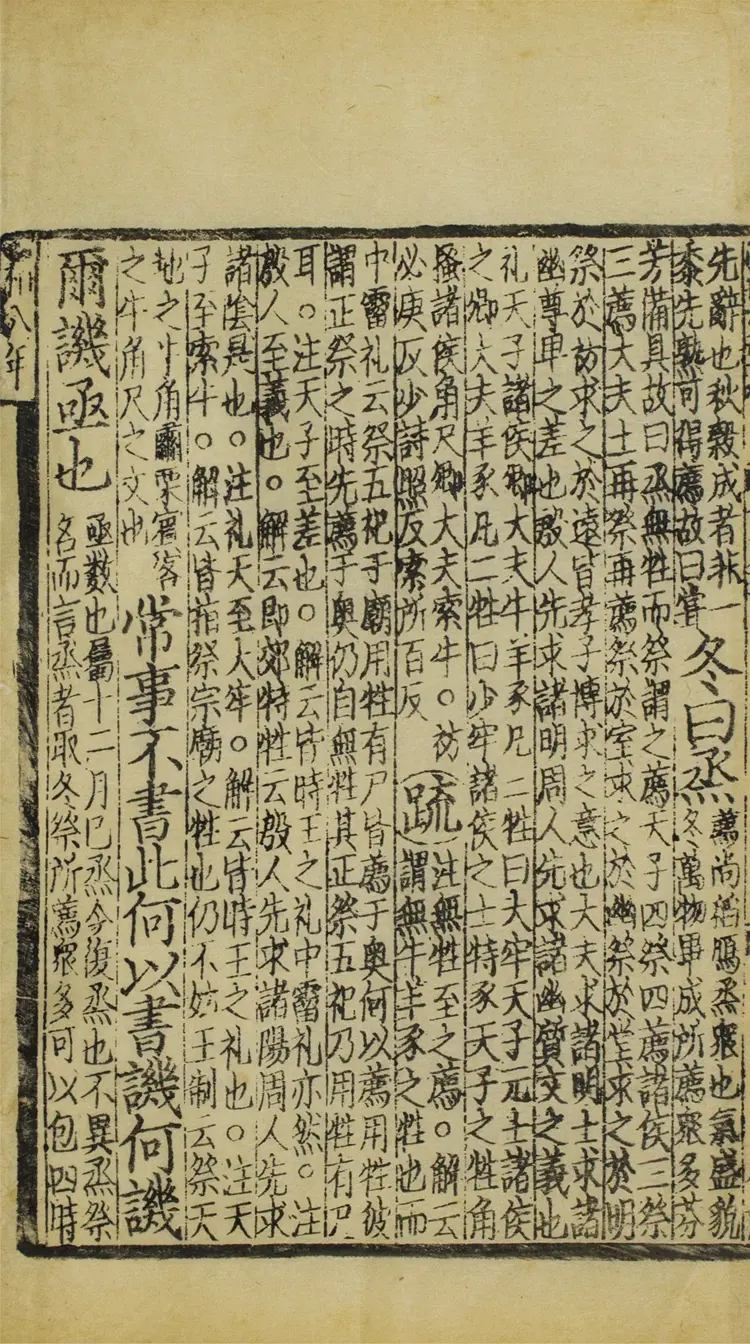 先辭也秋穀成者非一
黍先熟可得薦故曰甞
冬曰烝
薦尚稻鴈烝衆也氣盛貌
冬萬物畢成所薦衆多芬
芳備具故曰烝無牲而祭謂之薦天子四祭四薦諸侯三祭
三薦大夫士再祭再薦祭於室求之於幽祭於堂求之於明
祭於祊求之於遠皆孝子博求之意也大夫求諸明士求諸
幽尊卑之差也殷人先求諸明周人先求諸幽質文之義也
礼天子諸侯卿大夫牛羊豕凡二牲曰大牢天子元士諸侯
之卿大夫羊豕凡二牲曰少牢諸侯之士特豕天子之牲角
搔諸侯角尺卿大夫索牛○祊
必庚反少詩照反索所百反
疏
注無牲至之薦○解云
謂無牛羊豕之牲也而
中霤礼云祭五祀于廟用牲有尸皆薦于奥何以薦用牲彼
謂正祭之時先薦于奥仍自無牲其正祭五祀乃用牲有尸
耳○注天子至差也○解云皆時王之礼中霤礼亦然○注
殷人至義也○解云即郊特牲云殷人先求諸陽周人先求
諸陰是也○注礼天至大牢○解云皆時王之礼也○注天
子至索牛○解云皆指祭宗廟之牲也仍不妨王制云祭天
地之牛角繭栗賓客
之牛角尺之文也
常事不書此何以書譏何譏
爾譏亟也
亟數也屬十二月已烝今復烝也不異烝祭
名而言烝者取冬祭所薦衆多可以包四時
八年